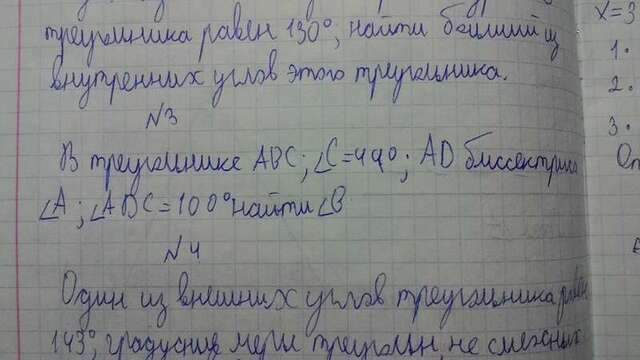 треугольника равен 130°, найти больший из
внутренних углов этого треугольника.
N3
В треугольнике ABC; ∠C=49°; AD биссектриса
∠A; ∠ADC=100° найти ∠B
N4
Один из внешних углов треугольника равен
143°, градусные меры треугольн, не смежных
x=3
1.
2.
3.
От